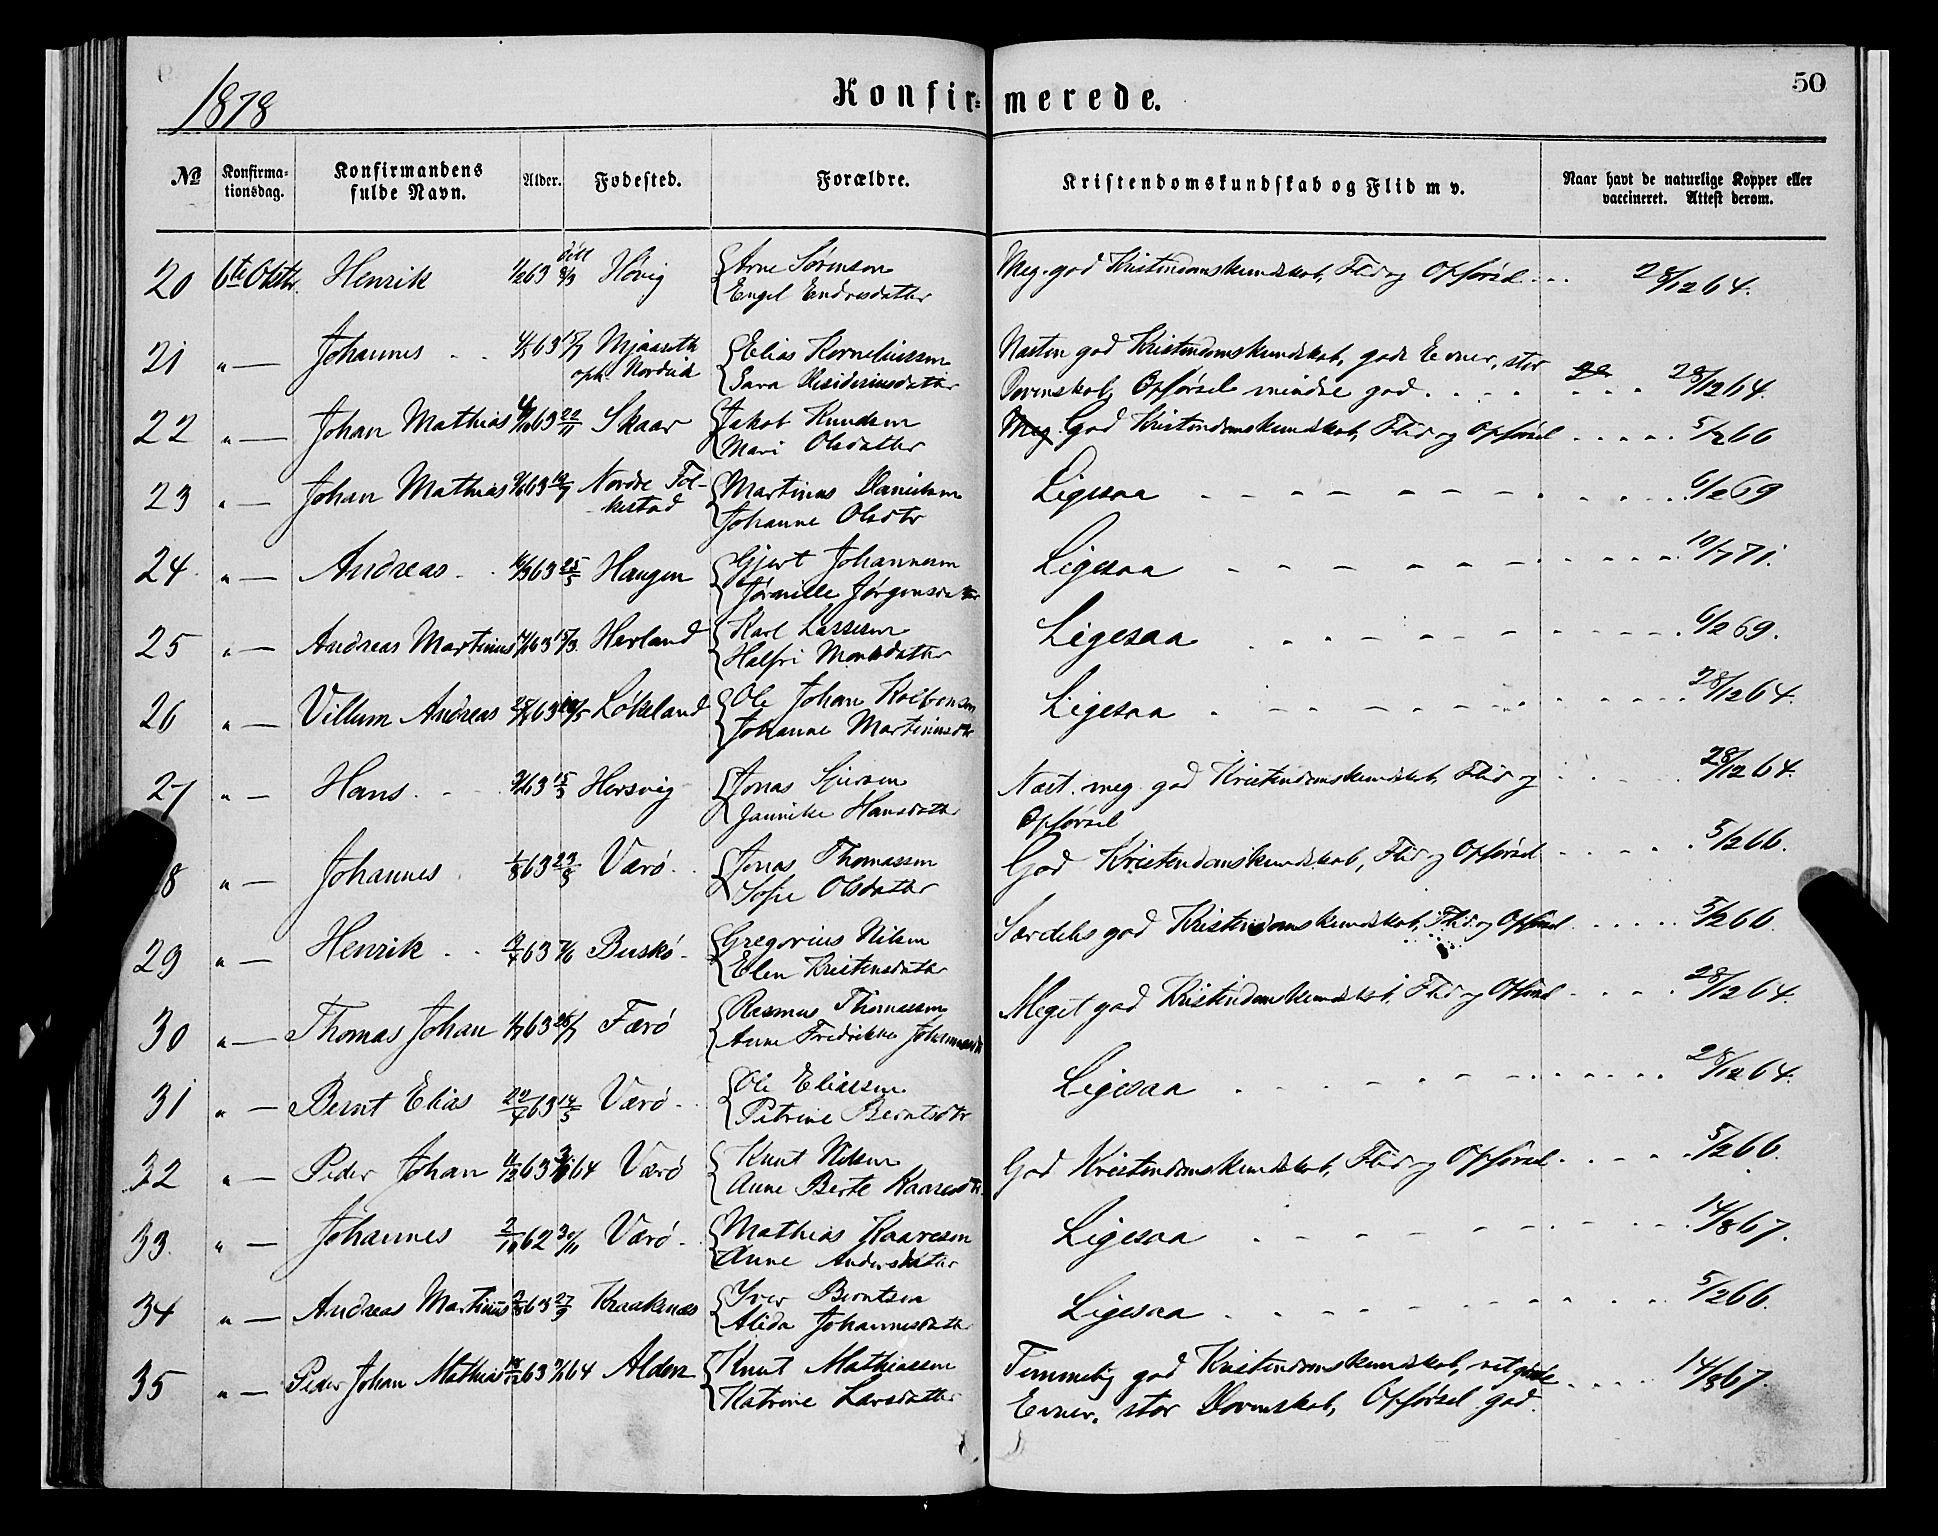 50
1878
Konfir=merede.
№ Konfirma=tionsdag. Konfirmandens fulde Navn. Alder. Fødested. Forældre. Kristendomskundskab og Flid m v. Naar havt de naturlige Kopper eller vaccineret. Attest derom.
20 6te Oktbr. Henrik 63 8/3 Høvig Arne Sørensen Meg. god Kristendomskundskab, Flid og Opførsel 28/12 64.
Engel Endresdatter
21 " — Johannes 63 Mjaaseth Elias Korneliussen Næsten god Kristendomskundskab, gode Evner, stor
Nordvik Sara Desideriusdatter Dovenskab, Opførsel mindre god 28/12 64.
22 " — Johan Mathias 63 22/11 Skaar Jakob Knudsen Meg God Kristendomskundskab, Flid og Opførsel 5/2 66
Mari Olsdatter
23 " — Johan Mathias 63 Nordre Fol- Martinus Danielsen Ligesaa 6/2 69
kestad Johanne Olsdtr
24 " — Andreas 63 25/5 Haugen Gjert Johannesen Ligesaa 10/7 71.
Jørgensdatter
25 " — Andreas Martinus 63 15/3 Herland Karl Lassesen Ligesaa 6/2 69.
Halfri Monsdatter
26 " — Villum Andreas 63 Løkeland Ole Johan Kolbensen Ligesaa 28/12 64.
Johanne Martinusdtr
27 " — Hans 63 15/3 Hersvig Jonas Næst. meg god Kristendomskundskab, Flid og 28/12 64.
Jannike Hansdatter Opførsel
8 " — Johannes 63 23/8 Værø Jonas Thomassen God Kristendomskundskab, Flid og Opførsel 5/2 66.
Sofie Olsdatter
29 " — Henrik 63 7/6 Buskø Gregorius Nilsen Særdeles god Kristendomskundskab, Flid og Opførsel 5/2 66.
Elen Kristensdatter
30 " — Thomas Johan 63 26/7 Færø Rasmus Thomassen Meget god Kristendomskundskab, Flid og Opførsel 28/12 64.
Anne Fredrikke
31 " — Bernt Elias 63 14/5 Værø Ole Eliassen Ligesaa 28/12 64.
Petrine Berntsdtr
32 " — Peder Johan 11/12 63 64 Værø Knut Nilsen God Kristendomskundskab, Flid og Opførsel 5/2 66.
Anne Berte Kaaresdtr.
33. " — Johannes 2/10 62 30/11 Værø Mathias Kaaresen Ligesaa 14/8 67.
Anne Andersdatter
34 " — Andreas Martinus 63 27/9 Kraakenæs Iver Berntsen Ligesaa 5/2 66.
Alida Johannesdatter
35 " — Peder Johan Mathias 63 64 Alden Knut Mathiassen Temmelig god Kristendomskundskab, ret gode 14/8 67.
Katrine Larsdatter Evner, stor Dovenskab, Opførsel god.